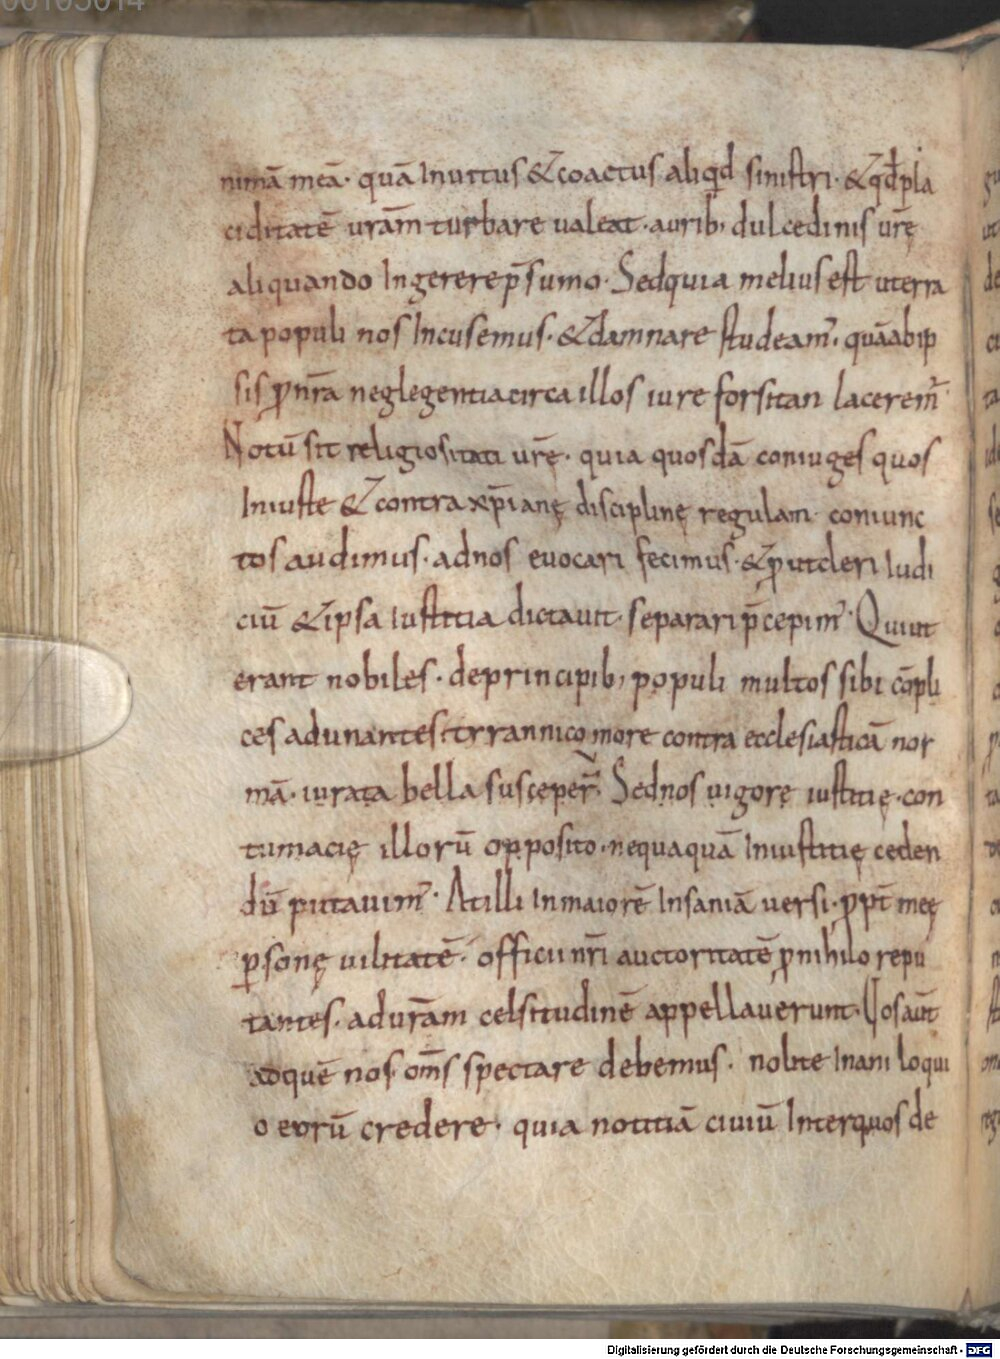 00105014
nimā meā· quā Inuitus & coactus aliqid sinistri· & qđ pla
ciditatē uram̄ turbare ualeat· aurib; dulcedinis urę̄
aliquando Ingerere p̄sumo· Sed quia melius est ut erra
ta populi nos Incusemus· & damnare studeam᾽· quā ab ip
sis ꝓ nr̄a neglegentia circa illos iure forsitan lacerem᾽
Notū sit religiositati urę̄· quia quosdā coniuges quos
Iniuste & contra xp̄ianę disciplinę regulam coniunc
tos audimus· ad nos euocari fecimus· & ꝓut cleri Iudi
ciū & ipsa Iustitia dictauit· separari p̄cepim᾽· Qui ut
erant nobiles· de principib; populi multos sibi cōpli
ces adunantes tyrannico more contra ecclesiasticā nor
mā· iurata bella susceper̄· Sed nos uigore iustitię· con
tumacię illorū opposito· nequaquā Iniustitię ceden
dū putauim᾽· At illi In maiorē Insaniā uersi· ꝓpt̄ meę
ꝑsonę uilitatē· officii nr̄i auctoritatē ꝓ nihilo repu
tantes· ad uram̄ celsitudinē appellauerunt· Uos aūt
ad quē nos om̄s spectare debemus· nolite Inani loqui
o eorū credere· quia notitiā ciuiū Inter quos de
Digitalisierung gefördert durch die Deutsche Forschungsgemeinschaft - DFG